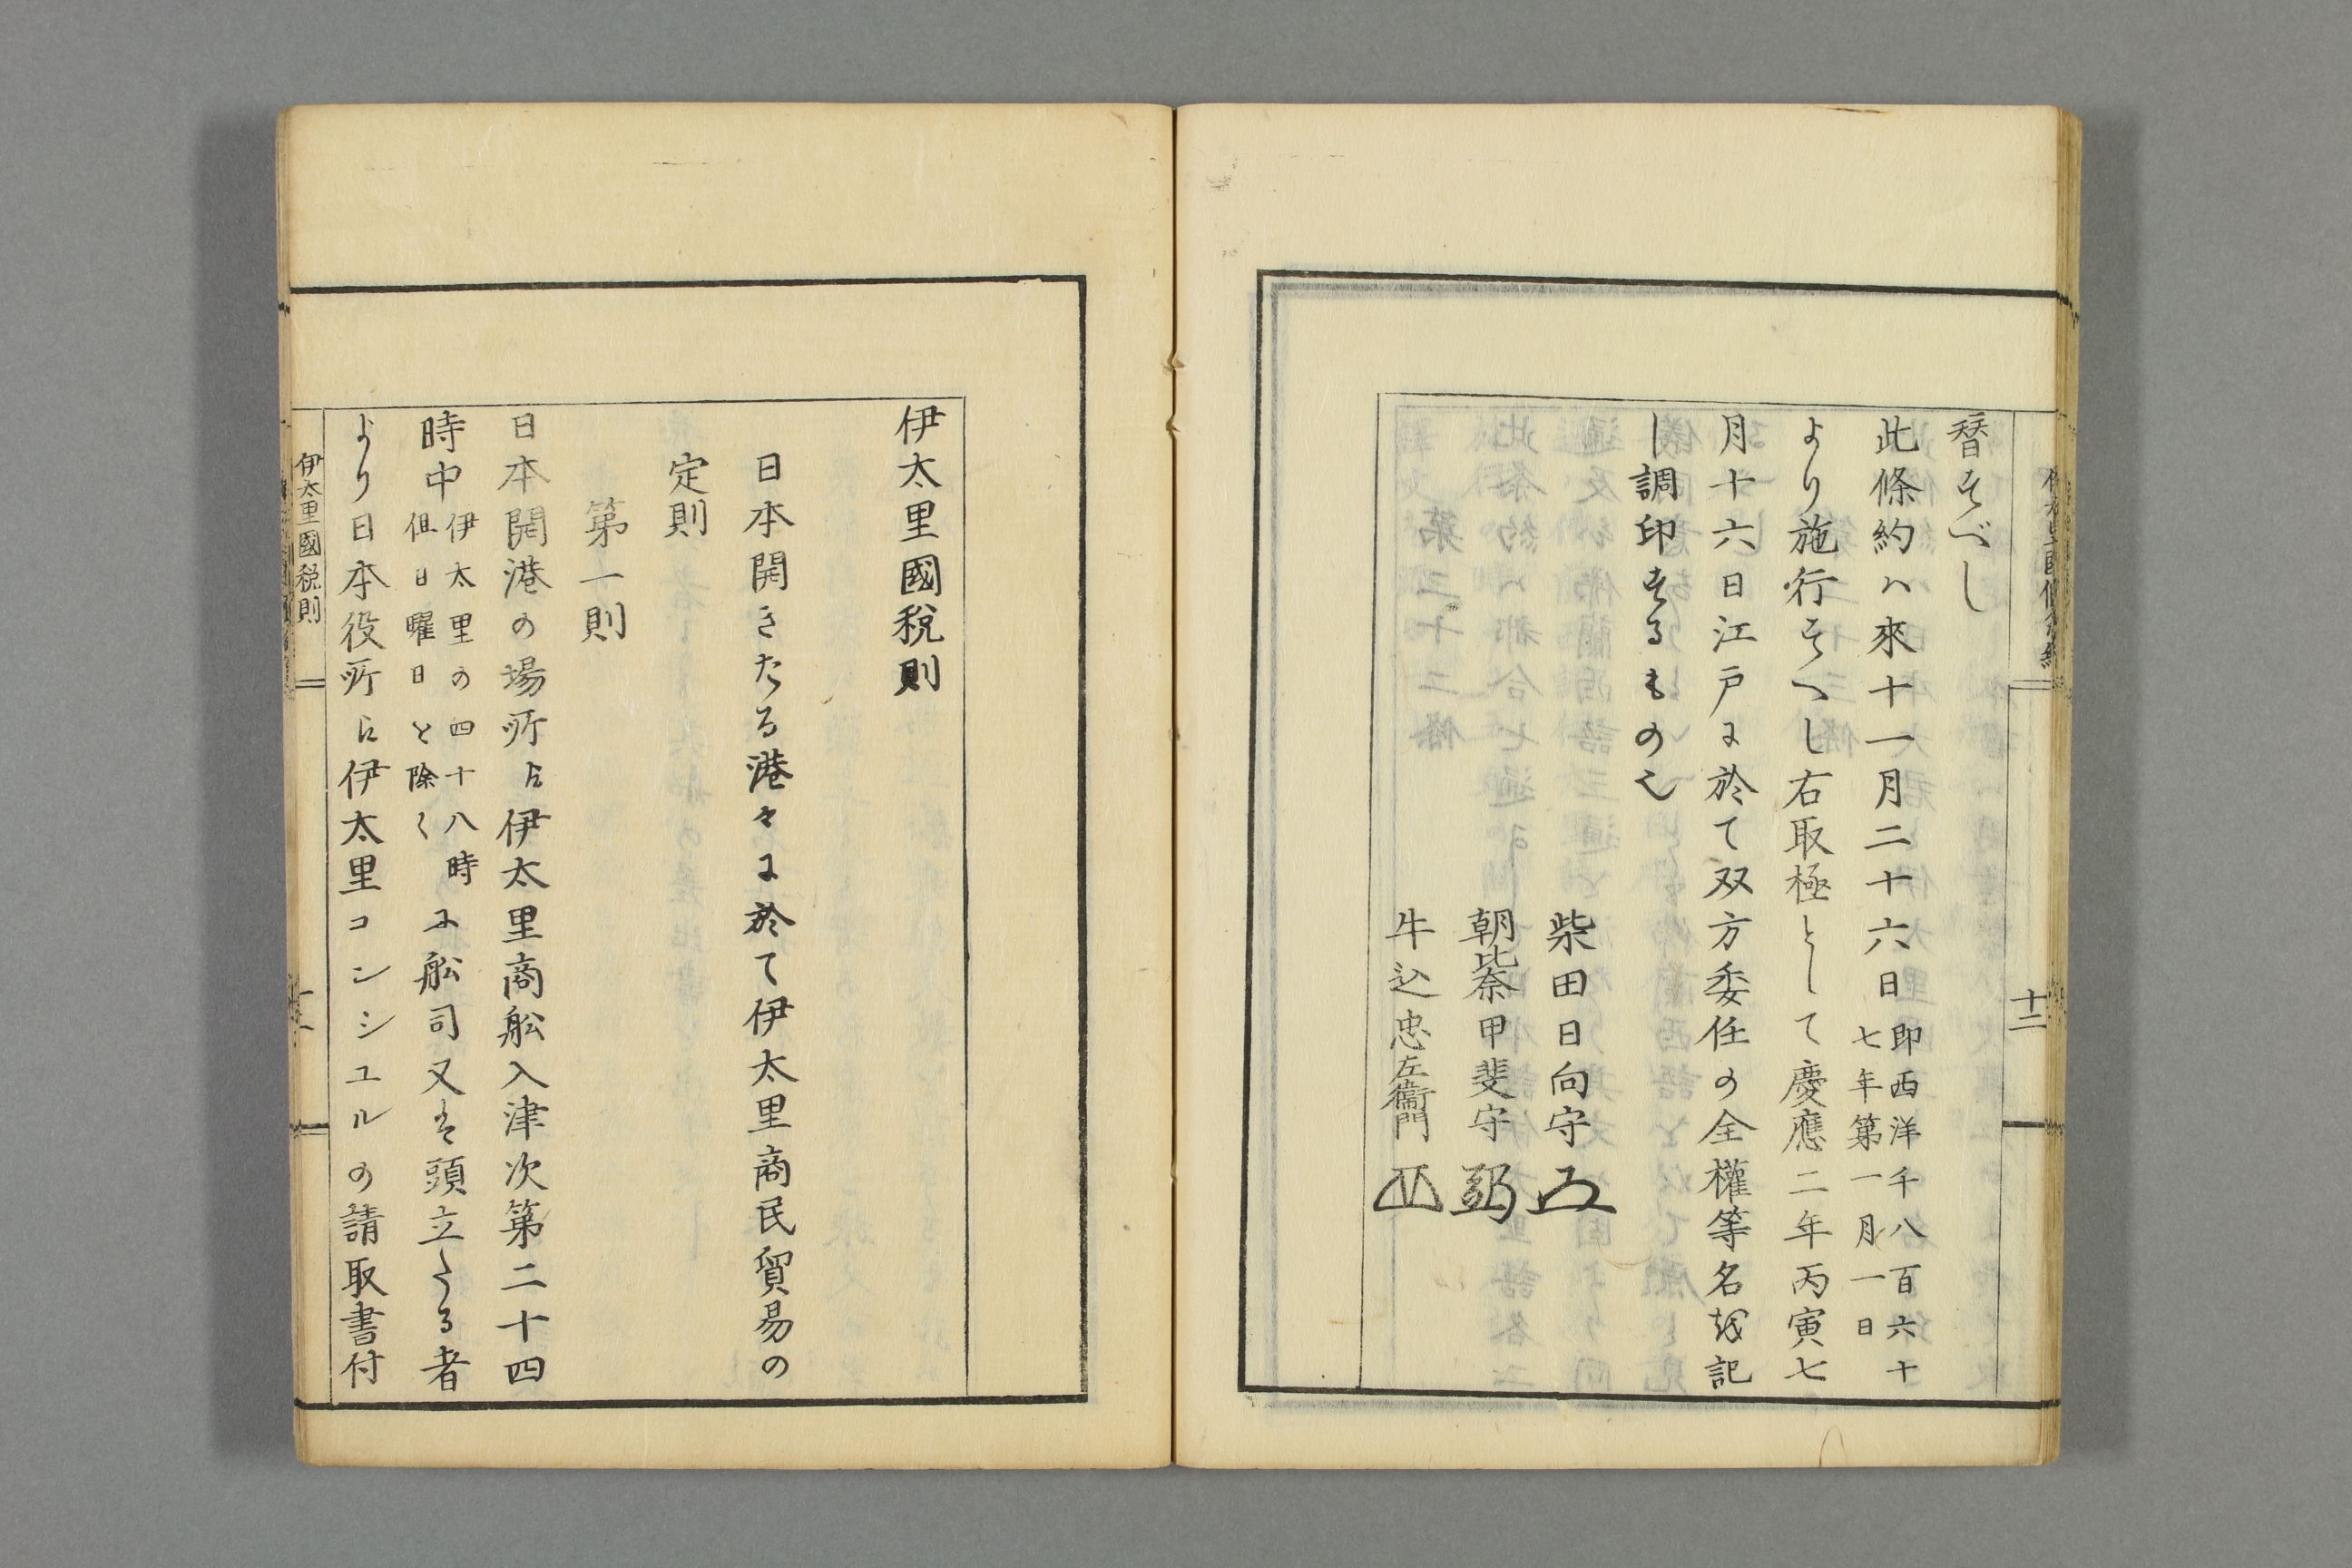 替すべし
此條約ハ來十一月二十六日即西洋千八百六十
七年第一月一日
より施行すへし右取極として慶應二年丙寅七
月十六日江戸に於て双方委任の全權等名を記
し調印するもの也
柴田日向守
朝比奈甲斐守
牛込忠左衞門
十二
伊太里國税則
日本開きたる港々に於て伊太里商民貿易の
定則
第一則
日本開港の場所に伊太里商舩入津次第二十四
時中伊太里の四十八時
但日曜日を除く
に舩司又は頭立たる者
より日本役所に伊太里コンシユルの請取書付
伊太里國税則